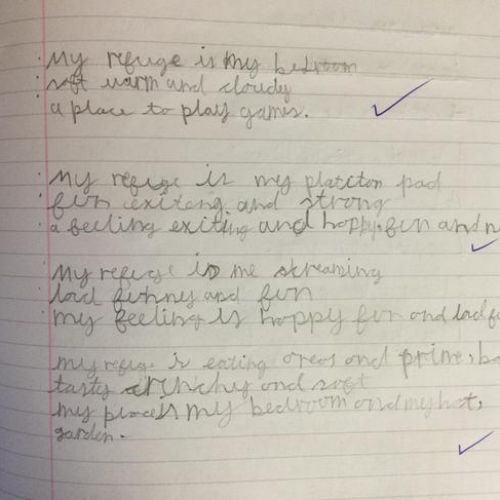 My refuge is my bedroom
soft warm and cloudy
a place to play games.
My refuge is my pad
fun exiteng and strong
a feeling exiting and happy, fun and
My refuge is me streaming
lad funney and fun
my feeling is happy fun and lad
my refuge is eating oreos and prime,
tasty crunchy and soft
my place is my bedroom and my hot,
garden.